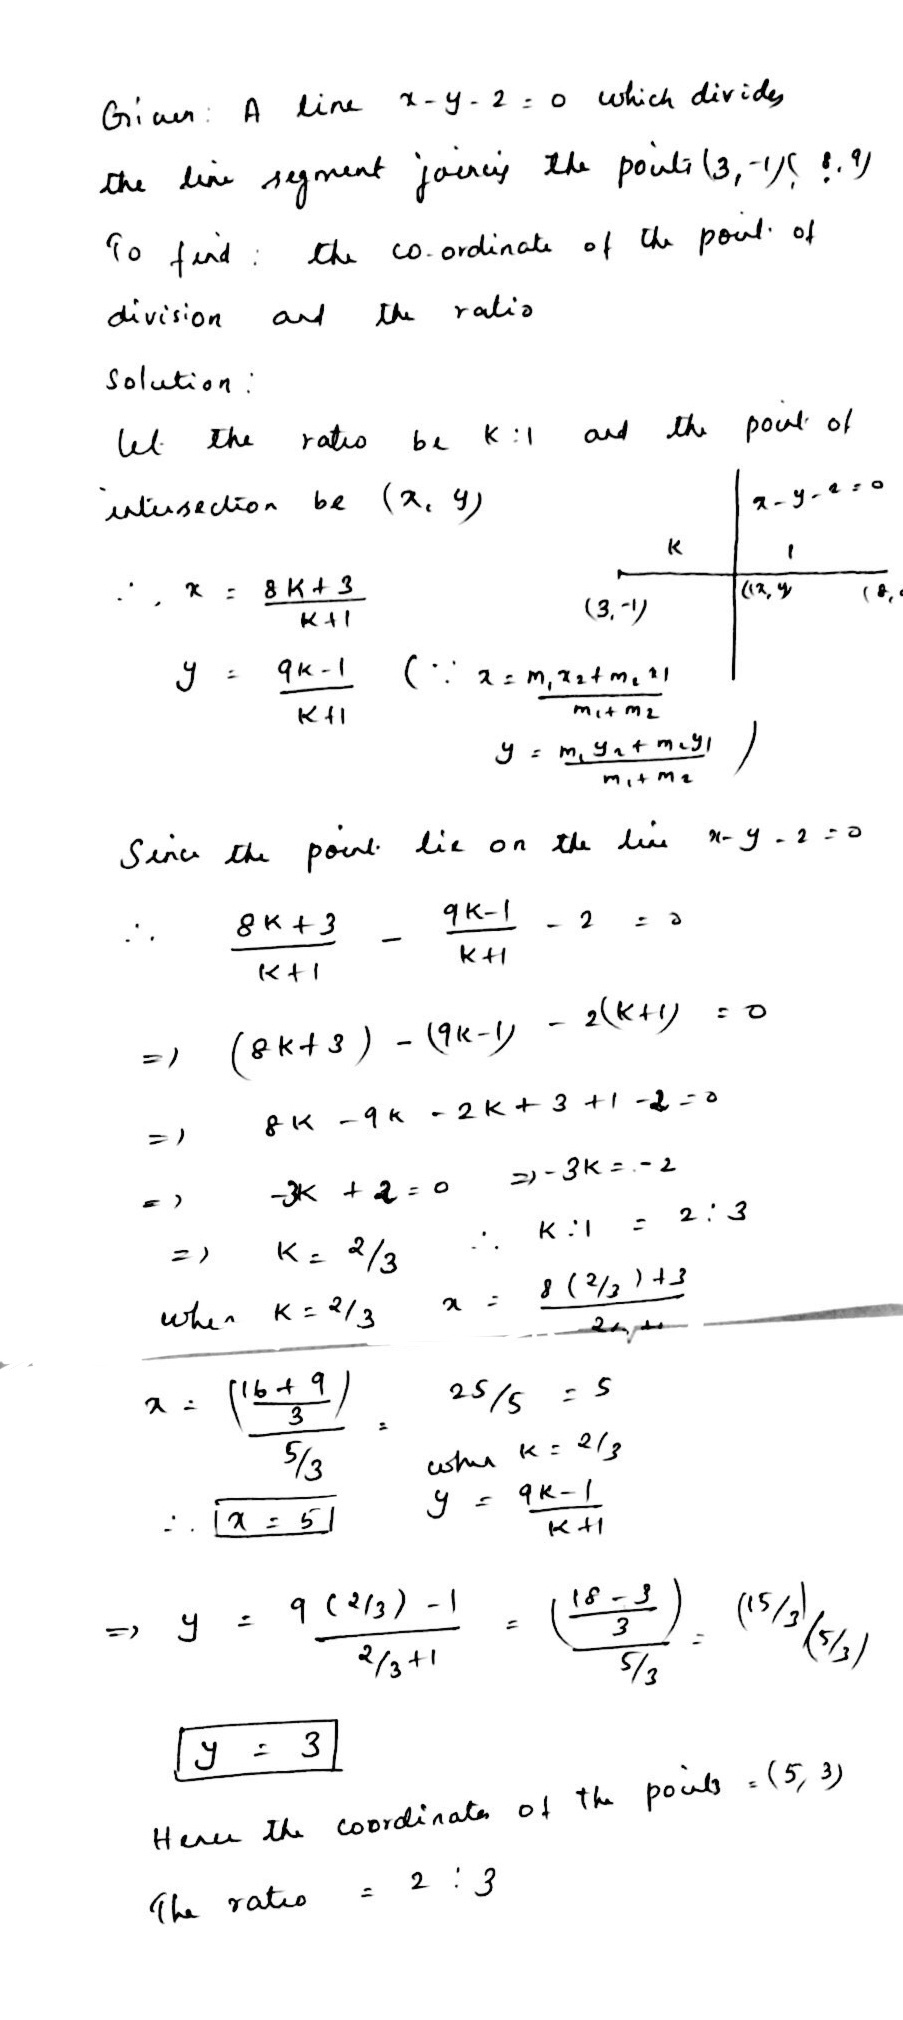 Given: A line x-y-2=0 which divides
the line segment joining the points (3,-1) & (8,9)
To find: the co-ordinate of the point of
division and the ratio
Solution:
Let the ratio be K:1 and the point of
intersection be (x, y)
x-y-2=0
K 1
(3,-1) (x, y) (8,
∴, x = (8K+3)/(K+1)
y = (9K-1)/(K+1) (∵ x = (m₁x₂+m₂x₁)/(m₁+m₂)
y = (m₁y₂+m₂y₁)/(m₁+m₂) )
Since the point lie on the line x-y-2=0
∴ (8K+3)/(K+1) - (9K-1)/(K+1) - 2 = 0
=) (8K+3) - (9K-1) - 2(K+1) = 0
=) 8K - 9K - 2K + 3 + 1 - 2 = 0
=) -3K + 2 = 0 =) -3K = -2
=) K = 2/3 ∴ K:1 = 2:3
when K = 2/3 x = 8(2/3)+3
x = ((16+9)/3)/(5/3) = 25/5 = 5
when K = 2/3
∴. x = 5 y = (9K-1)/(K+1)
=) y = (9(2/3)-1)/(2/3+1) = ((18-3)/3)/(5/3) = (15/3)/(5/3)
y = 3
Hence the coordinates of the points = (5, 3)
The ratio = 2:3